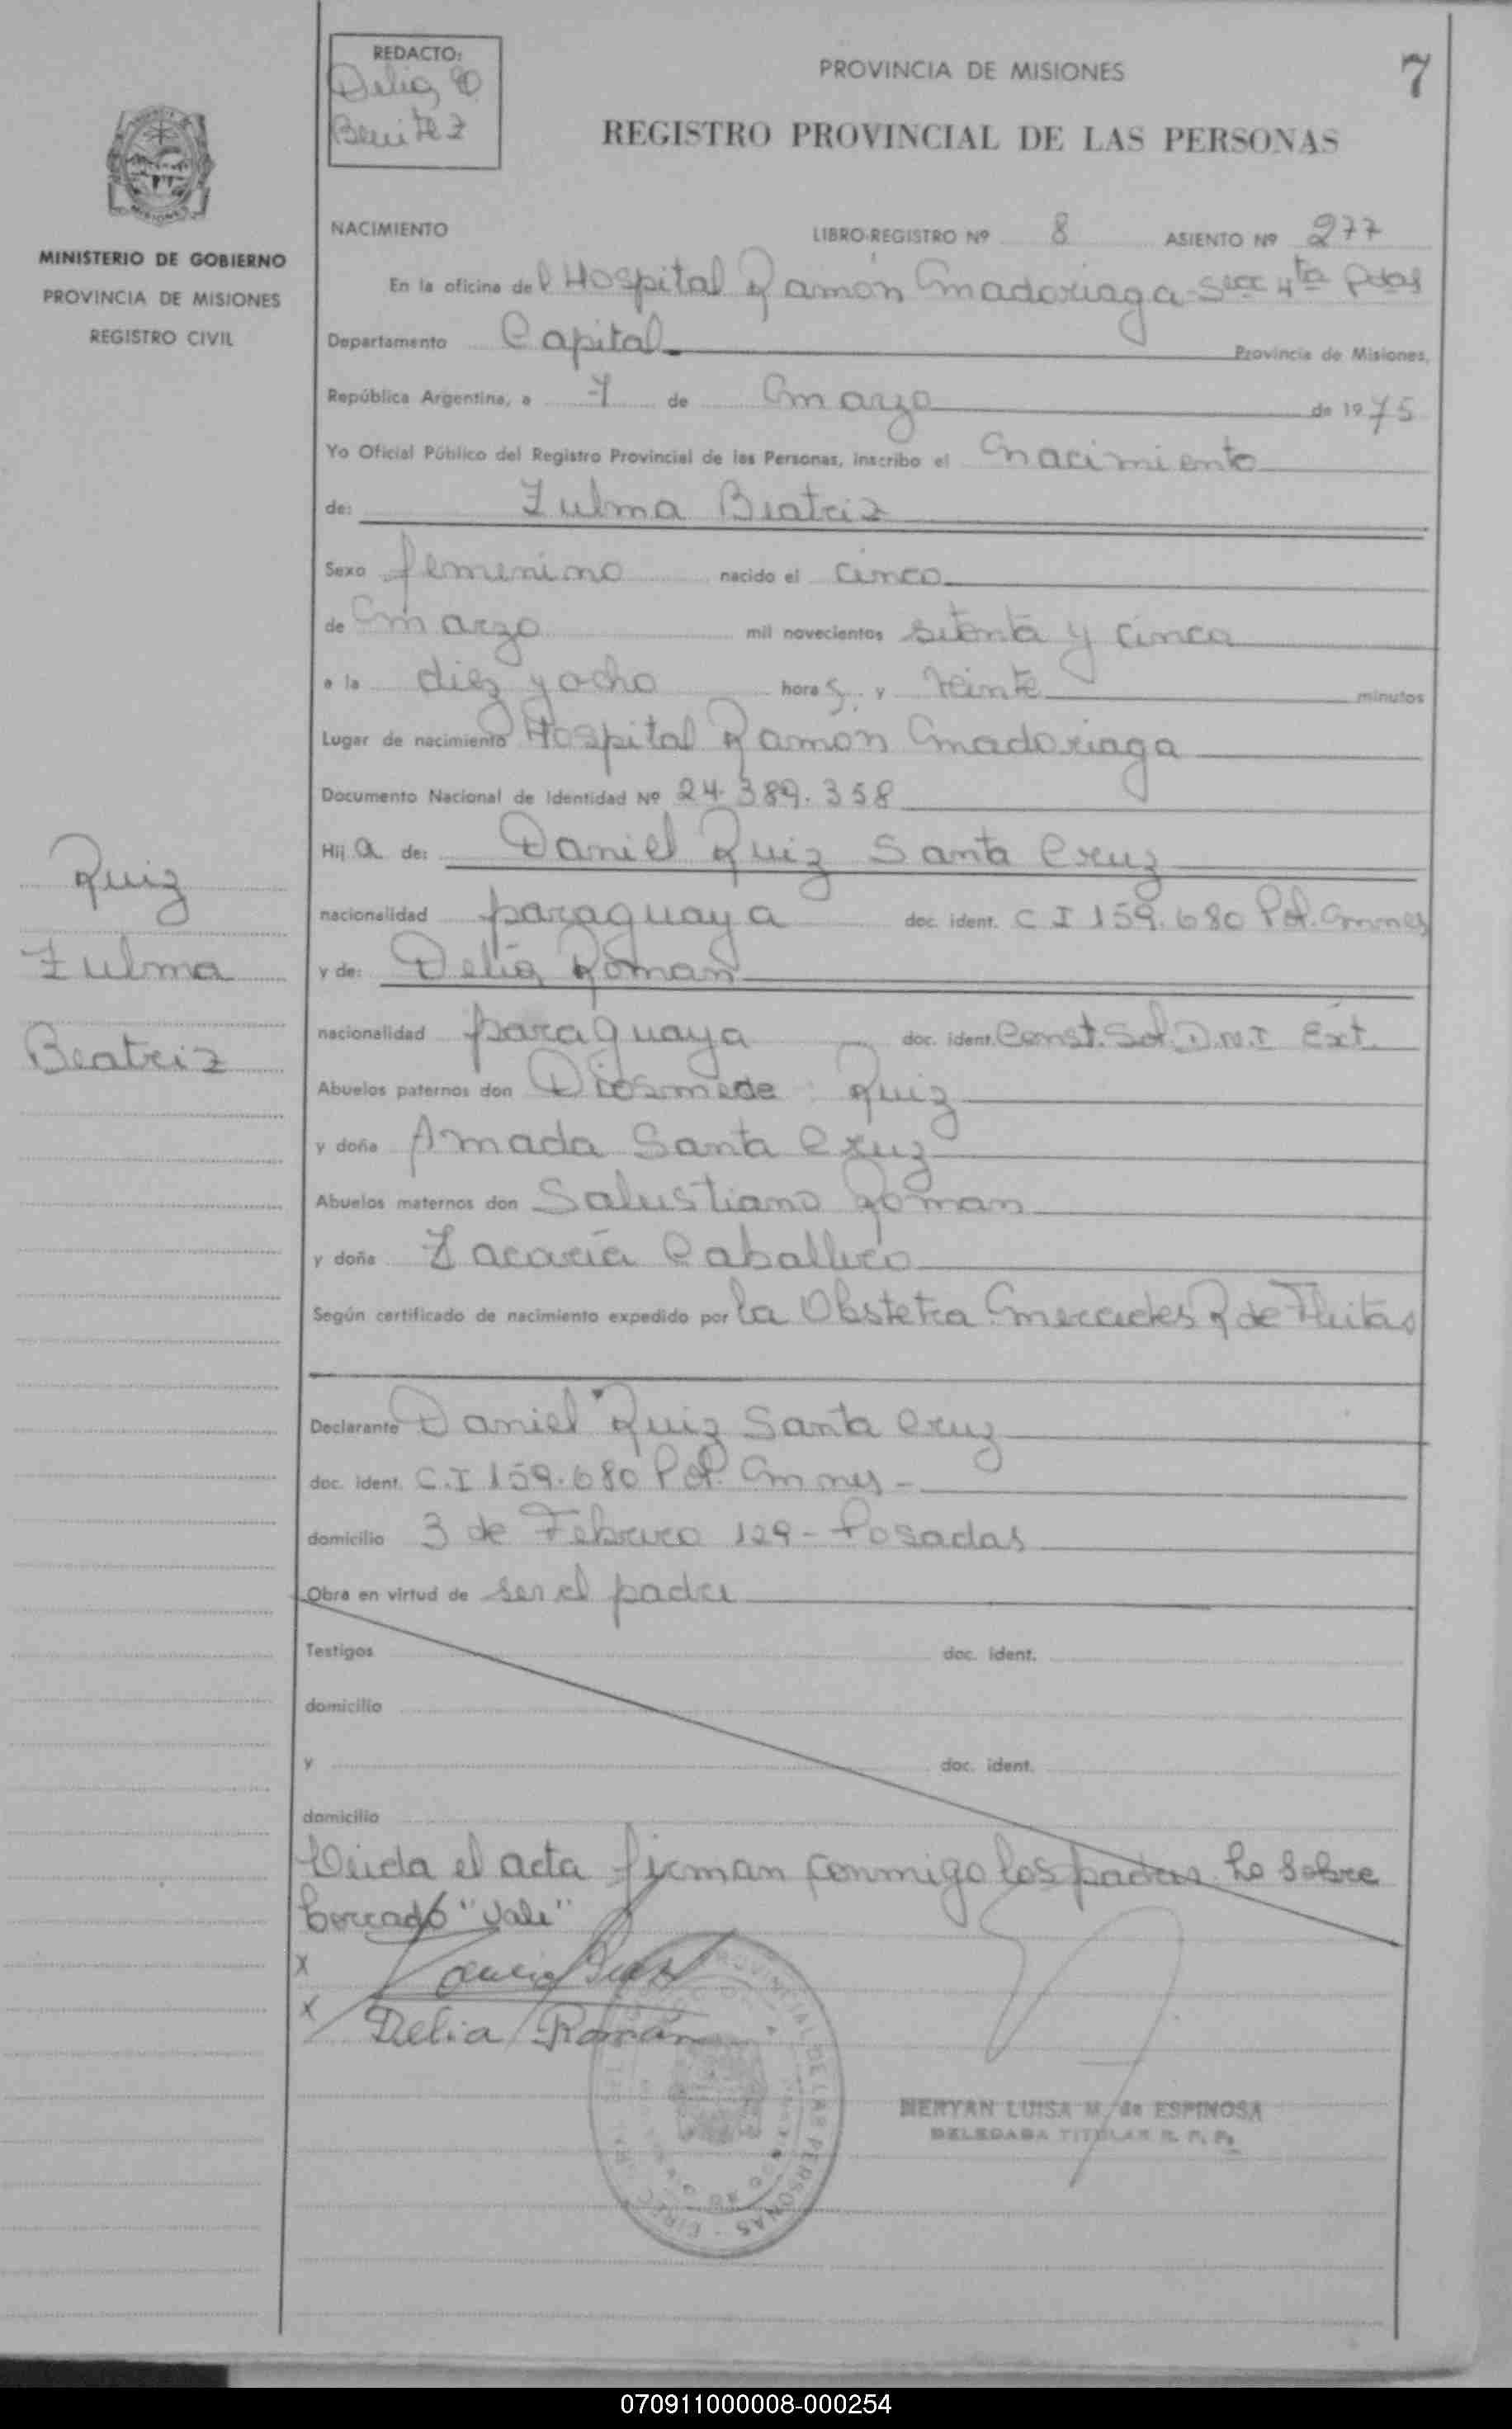 REDACTO:
Delia
Benitez
PROVINCIA DE MISIONES
7
REGISTRO PROVINCIAL DE LAS PERSONAS
MISIONES
MINISTERIO DE GOBIERNO
PROVINCIA DE MISIONES
REGISTRO CIVIL
NACIMIENTO LIBRO-REGISTRO Nº 8 ASIENTO Nº 277
En la oficina del Hospital Ramón Madariaga-Secc 4ta Pdas
Departamento Capital Provincia de Misiones,
República Argentina, a 7 de marzo de 1975
Yo Oficial Público del Registro Provincial de las Personas, inscribo el nacimiento
de: Zulma Beatriz
Sexo femenino nacido el cinco
de marzo mil novecientos setenta y cinco
a la diez y ocho horas y veinte minutos
Lugar de nacimiento Hospital Ramón Madariaga
Documento Nacional de Identidad Nº 24.389.358
Hija de: Daniel Ruiz Santa Cruz
nacionalidad paraguaya doc. ident. C I 159.680 Pol. Mnes
y de: Delia Roman
nacionalidad paraguaya doc. ident. Const. Sol. D.N.I Ext.
Abuelos paternos don Diosmede Ruiz
y doña Amada Santa Cruz
Abuelos maternos don Salustiano Roman
y doña Zacaria Caballero
Según certificado de nacimiento expedido por la Obstetra Mercedes R de Fleitas
Declarante Daniel Ruiz Santa Cruz
doc. ident. C.I 159.680 Pol. Mnes -
domicilio 3 de Febrero 129 - Posadas
Obra en virtud de ser el padre
Testigos doc. ident.
domicilio
y doc. ident.
domicilio
Leida el acta firman conmigo los padres. Lo sobre
borrado "vale"
x
x Delia Román
MERYAN LUISA M. de ESPINOSA
DELEGADA TITULAR R. P. P.
Ruiz
Zulma
Beatriz
070911000008-000254